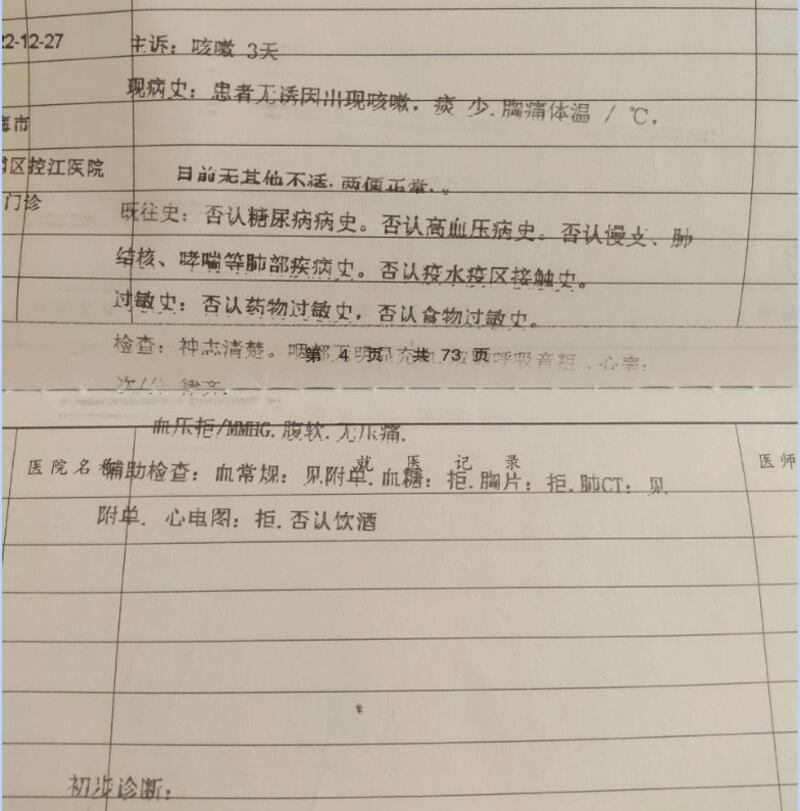 22-12-27
主诉：咳嗽 3天
现病史：患者无诱因出现咳嗽，痰 少.胸痛体温 / ℃，
海市
区控江医院
目前无其他不适.两便正常.。
门诊
既往史：否认糖尿病病史。否认高血压病史。否认慢支、肺
结核、哮喘等肺部疾病史。否认疫水疫区接触史。
过敏史：否认药物过敏史，否认食物过敏史。
检查：神志清楚。咽部无明显充血.双肺呼吸音粗.心率：
第 4 页 共 73 页
次/分 律齐.
血压拒/MMHG.腹软.无压痛.
医院名称 就医记录 医师
辅助检查：血常规：见附单.血糖：拒.胸片：拒.肺CT：见
附单. 心电图：拒.否认饮酒
初步诊断：